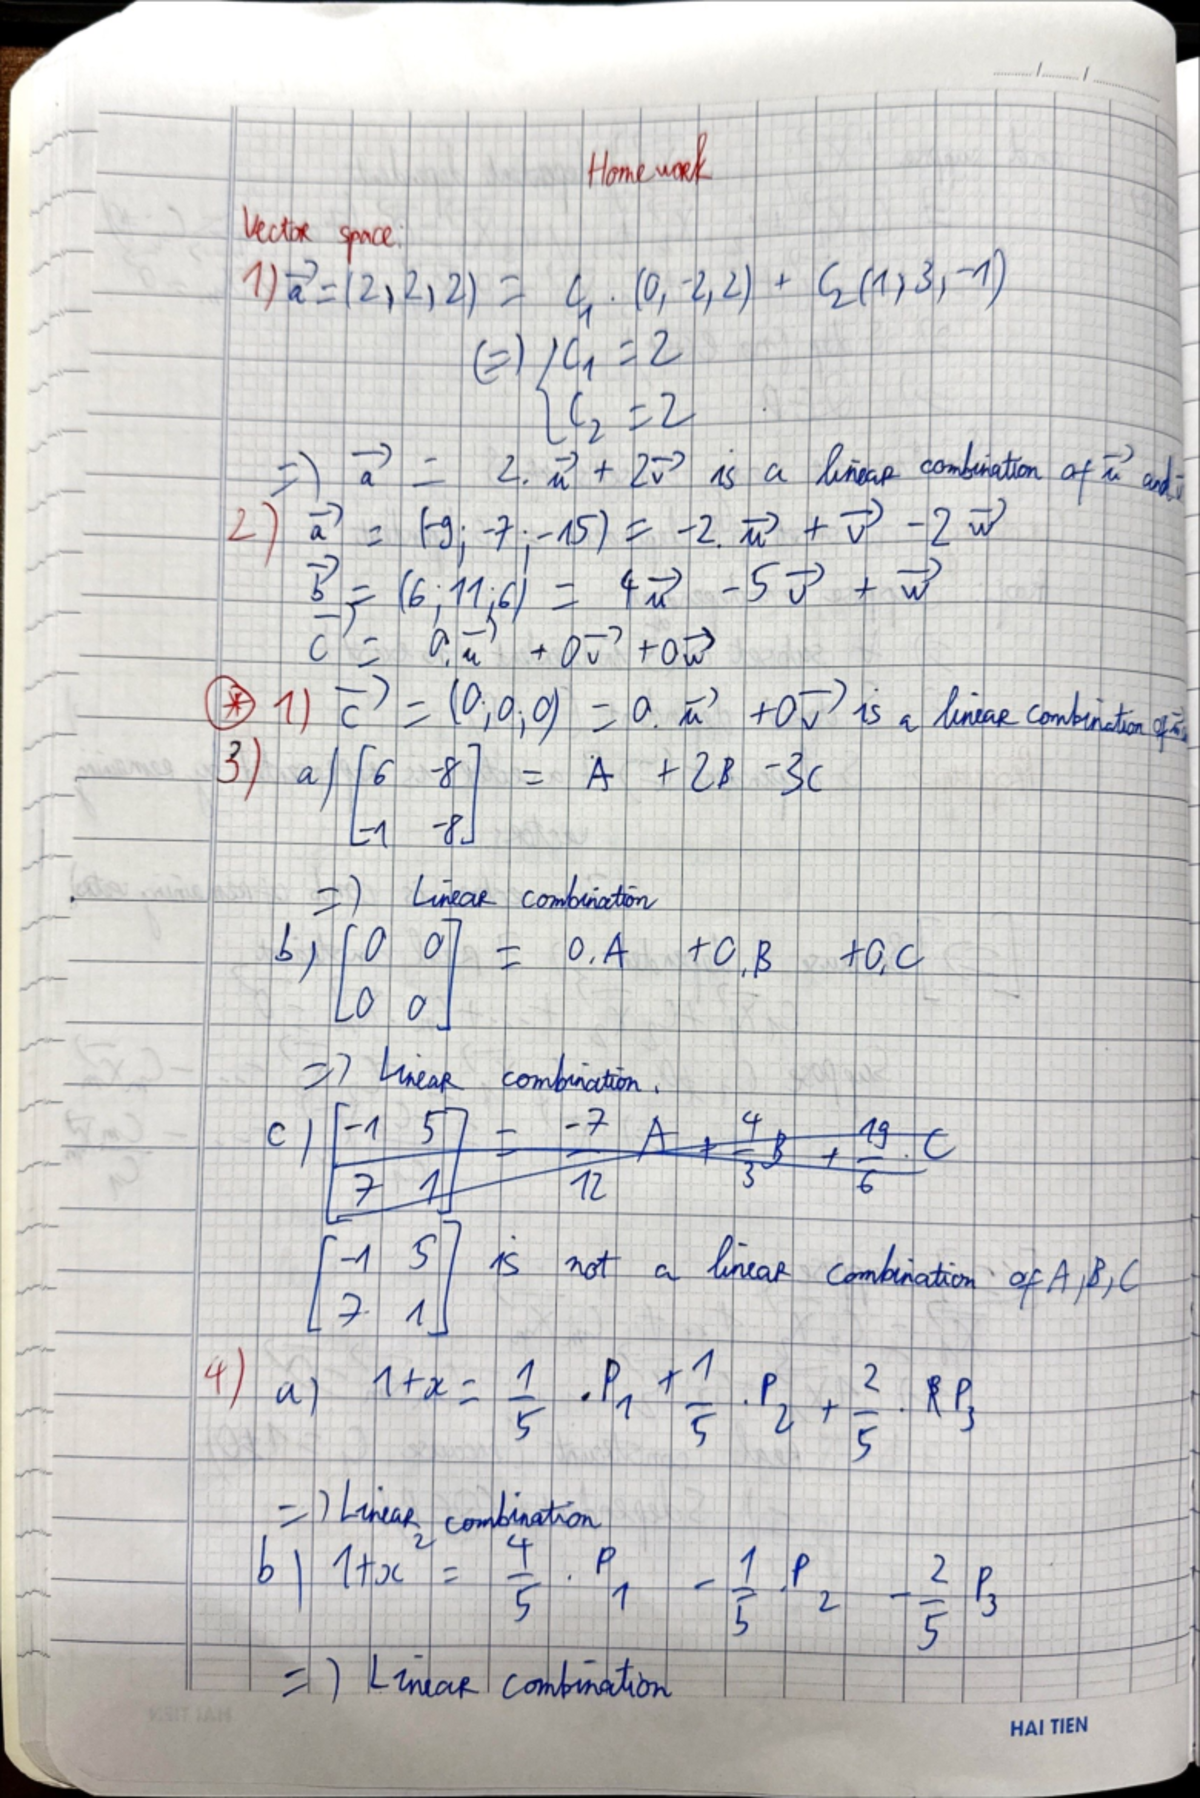 Homework
Vector space:
1) a⃗ = (2, 2, 2) = C₁ . (0, -2, 2) + C₂ (1, 3, -1)
(=) { C₁ = 2
C₂ = 2
=) a⃗ = 2. u⃗ + 2v⃗ is a linear combination of u⃗ and v⃗
2) a⃗ = (-9; -7; -15) = -2. u⃗ + v⃗ - 2 w⃗
b⃗ = (6; 11; 6) = 4u⃗ - 5v⃗ + w⃗
c⃗ = 0.u⃗ + 0v⃗ + 0w⃗
* 1) c⃗ = (0; 0; 0) = 0. u⃗ + 0v⃗ is a linear combination of
3) a) [6 -8] = A + 2B - 3C
[-1 -8]
=) Linear combination
b) [0 0] = 0.A + 0.B + 0.C
[0 0]
=) Linear combination.
c) [-1 5] = -7/12 A + 4/3 B + 19/6 . C
[7 1]
[-1 5] is not a linear combination of A, B, C
[7 1]
4) a) 1+x = 1/5 . P₁ + 1/5 . P₂ + 2/5 . P₃
=) Linear combination
b) 1+x² = 4/5 . P₁ - 1/5 . P₂ - 2/5 P₃
=) Linear combination
HAI TIEN